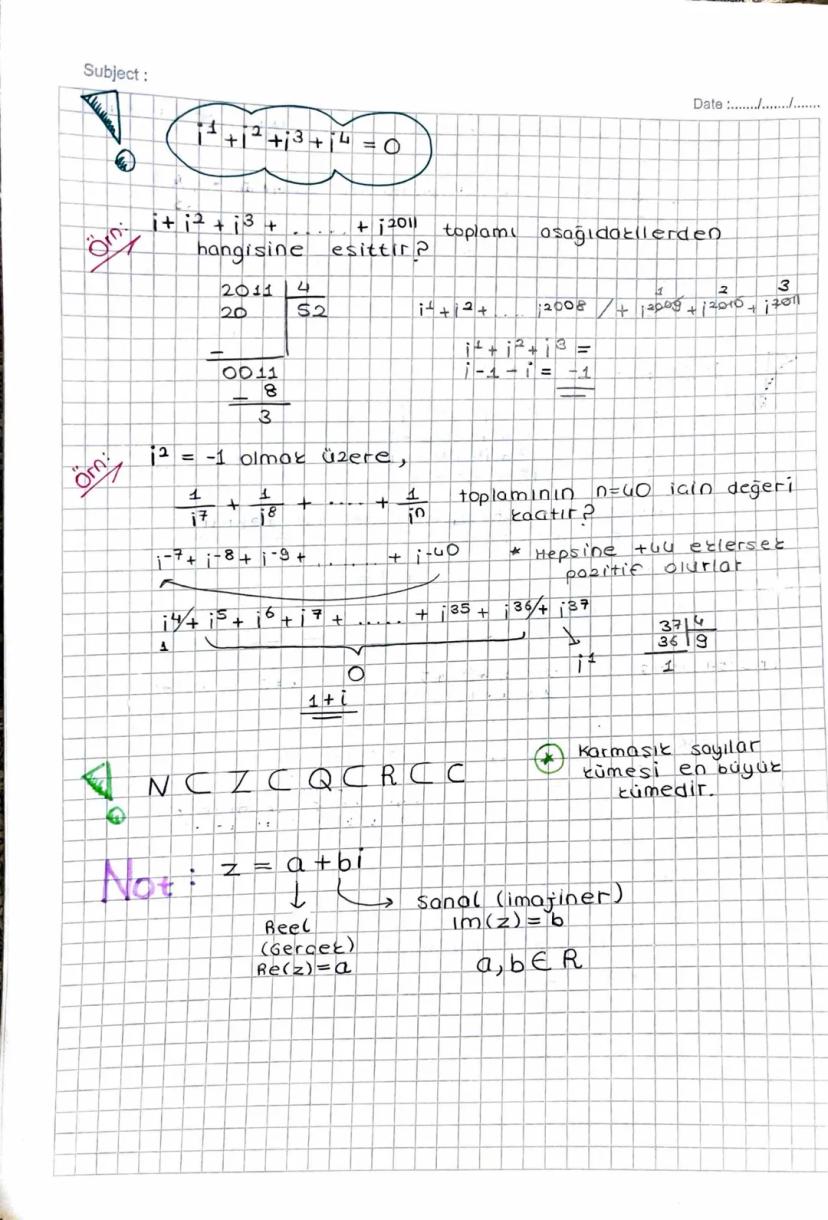 Subject :
Date :......./......./.......
i¹ + i² + i³ + i⁴ = 0
Örn: i + i² + i³ + ...... + i²⁰¹¹ toplamı aşağıdakilerden
hangisine eşittir?
2011 | 4
20 | 52
–
0011
– 8
3
1 2 3
i¹ + i² + .... i²⁰⁰⁸ / + i²⁰⁰⁹ + i²⁰¹⁰ + i²⁰¹¹
i¹ + i² + i³ =
i - 1 - i = -1
Örn: i² = -1 olmak üzere,
1/i⁷ + 1/i⁸ + ..... + 1/iⁿ toplamının n=40 için değeri
kaçtır?
i⁻⁷ + i⁻⁸ + i⁻⁹ + ....... + i⁻⁴⁰
* Hepsine +44 eklersek
pozitif olurlar
i⁴/ + i⁵ + i⁶ + i⁷ + ..... + i³⁵ + i³⁶/ + i³⁷
1
0
i¹
37 | 4
36 | 9
1
1 + i
N ⊂ Z ⊂ Q ⊂ R ⊂ C
* Karmaşık sayılar
kümesi en büyük
kümedir.
Not : z = a + bi
Sanal (imajiner)
Im(z) = b
Reel
(Gerçek)
Re(z) = a
a, b ∈ R